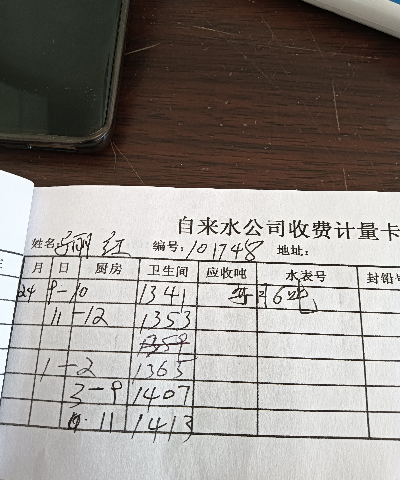 自来水公司收费计量卡
姓名: 丽红 编号: 101748 地址:
月 日 厨房 卫生间 应收吨 水表号 封铅号
24 9-10 1341
11-12 1353
1359
1-2 1365
3-9 1407
10.11 1413